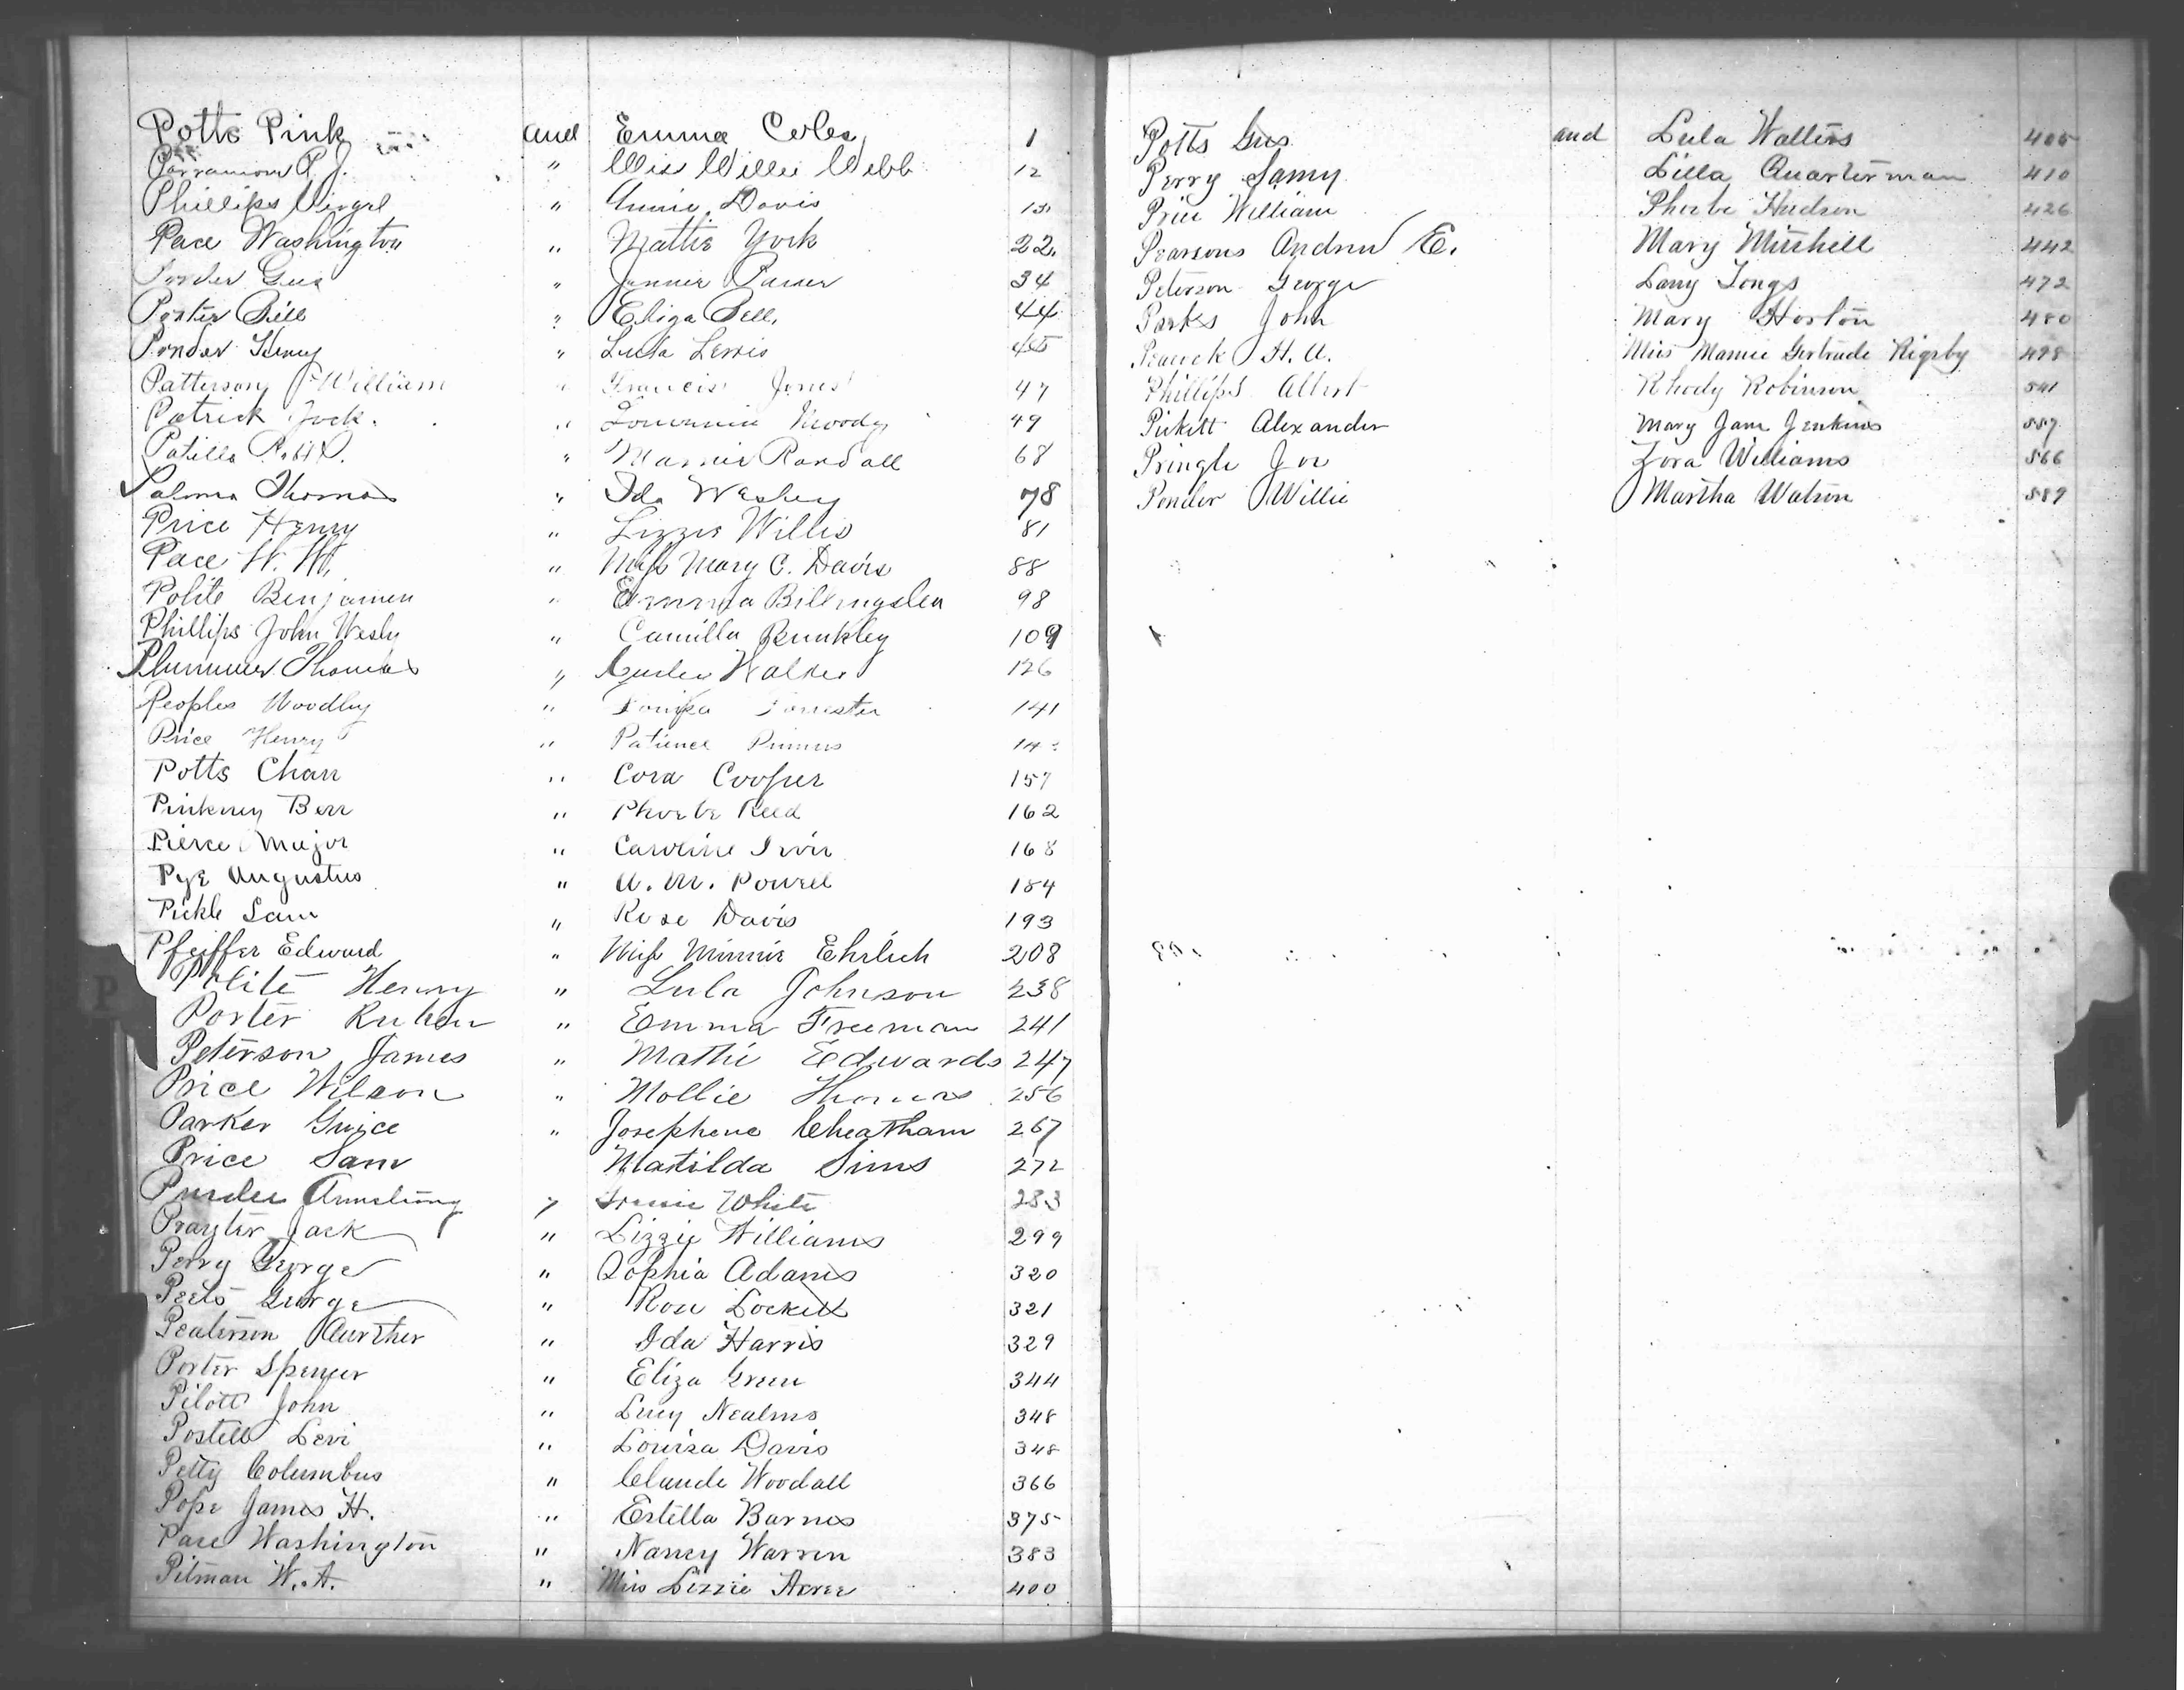 Potts Pink and Emma Coles 1
P. J. " Miss Willie Webb 12
Phillips Virgil " Annie Davis 13
Pace Washington " Mattie York 22
Ponder Gus " Jennie 34
Porter Bill " Eliza Bell 44
Ponder Henry " Lula Lewis 45
Patterson William " Francis Jones 47
Patrick Jock " Moody 49
Patillo Robt " Mamie Randall 68
Thomas " Ida Wesley 78
Price Henry " Lizzie Willis 81
Pace W. H. " Miss Mary C. Davis 88
Polite Benjamen " Emma Billingslea 98
Phillips John Wesly " Camilla Brunkley 109
Plummer Thomas " Walker 126
Peoples Woodley " Forrester 141
Price Henry " Patience Primus
Potts Chan " Cora Cooper 157
Pinkney Ben " Phoebe Reed 162
Pierce Major " Caroline 168
Pye Augustus " A. M. Powell 184
Pickle Sam " Rose Davis 193
Pfeiffer Edward " Miss Minnie Ehrlich 208
Polite Henry " Lula Johnson 238
Porter Ruben " Emma Freeman 241
Peterson James " Mattie Edwards 247
Price Wilson " Mollie Thomas 256
Parker Guice " Josephene Cheatham 267
Price Sam Matilda Sims 272
Armstrong " White 283
Prayter Jack " Lizzie Williams 299
Perry George " Sophia Adams 320
Peets George " Rosa Lockett 321
Peaterson Aurther " Ida Harris 329
Porter Spencer " Eliza Green 344
Pilott John " Lucy Nealms 348
Postell Levi " Louisa Davis 348
Petty Columbus " Claude Woodall 366
Pope James H. " Estella Barnes 375
Pace Washington " Nancy Warren 383
Pitman W. A. " Miss Lizzie Acree 400
Potts Gus and Lula Walters 405
Perry Samy Lilla Quarterman 410
Price William Phoebe Hudson 426
Pearsons Andrew E. Mary Mitchell 442
Peterson George Lany Tongs 472
Parks John Mary Horton 480
Peacock H. A. Miss Mamie Gertrude Rigsby 498
Phillips Albert Rhody Robinson 541
Pickett Alexander Mary Jane Jenkins 557
Pringle Joe Zora Williams 566
Ponder Willie Martha Watson 589